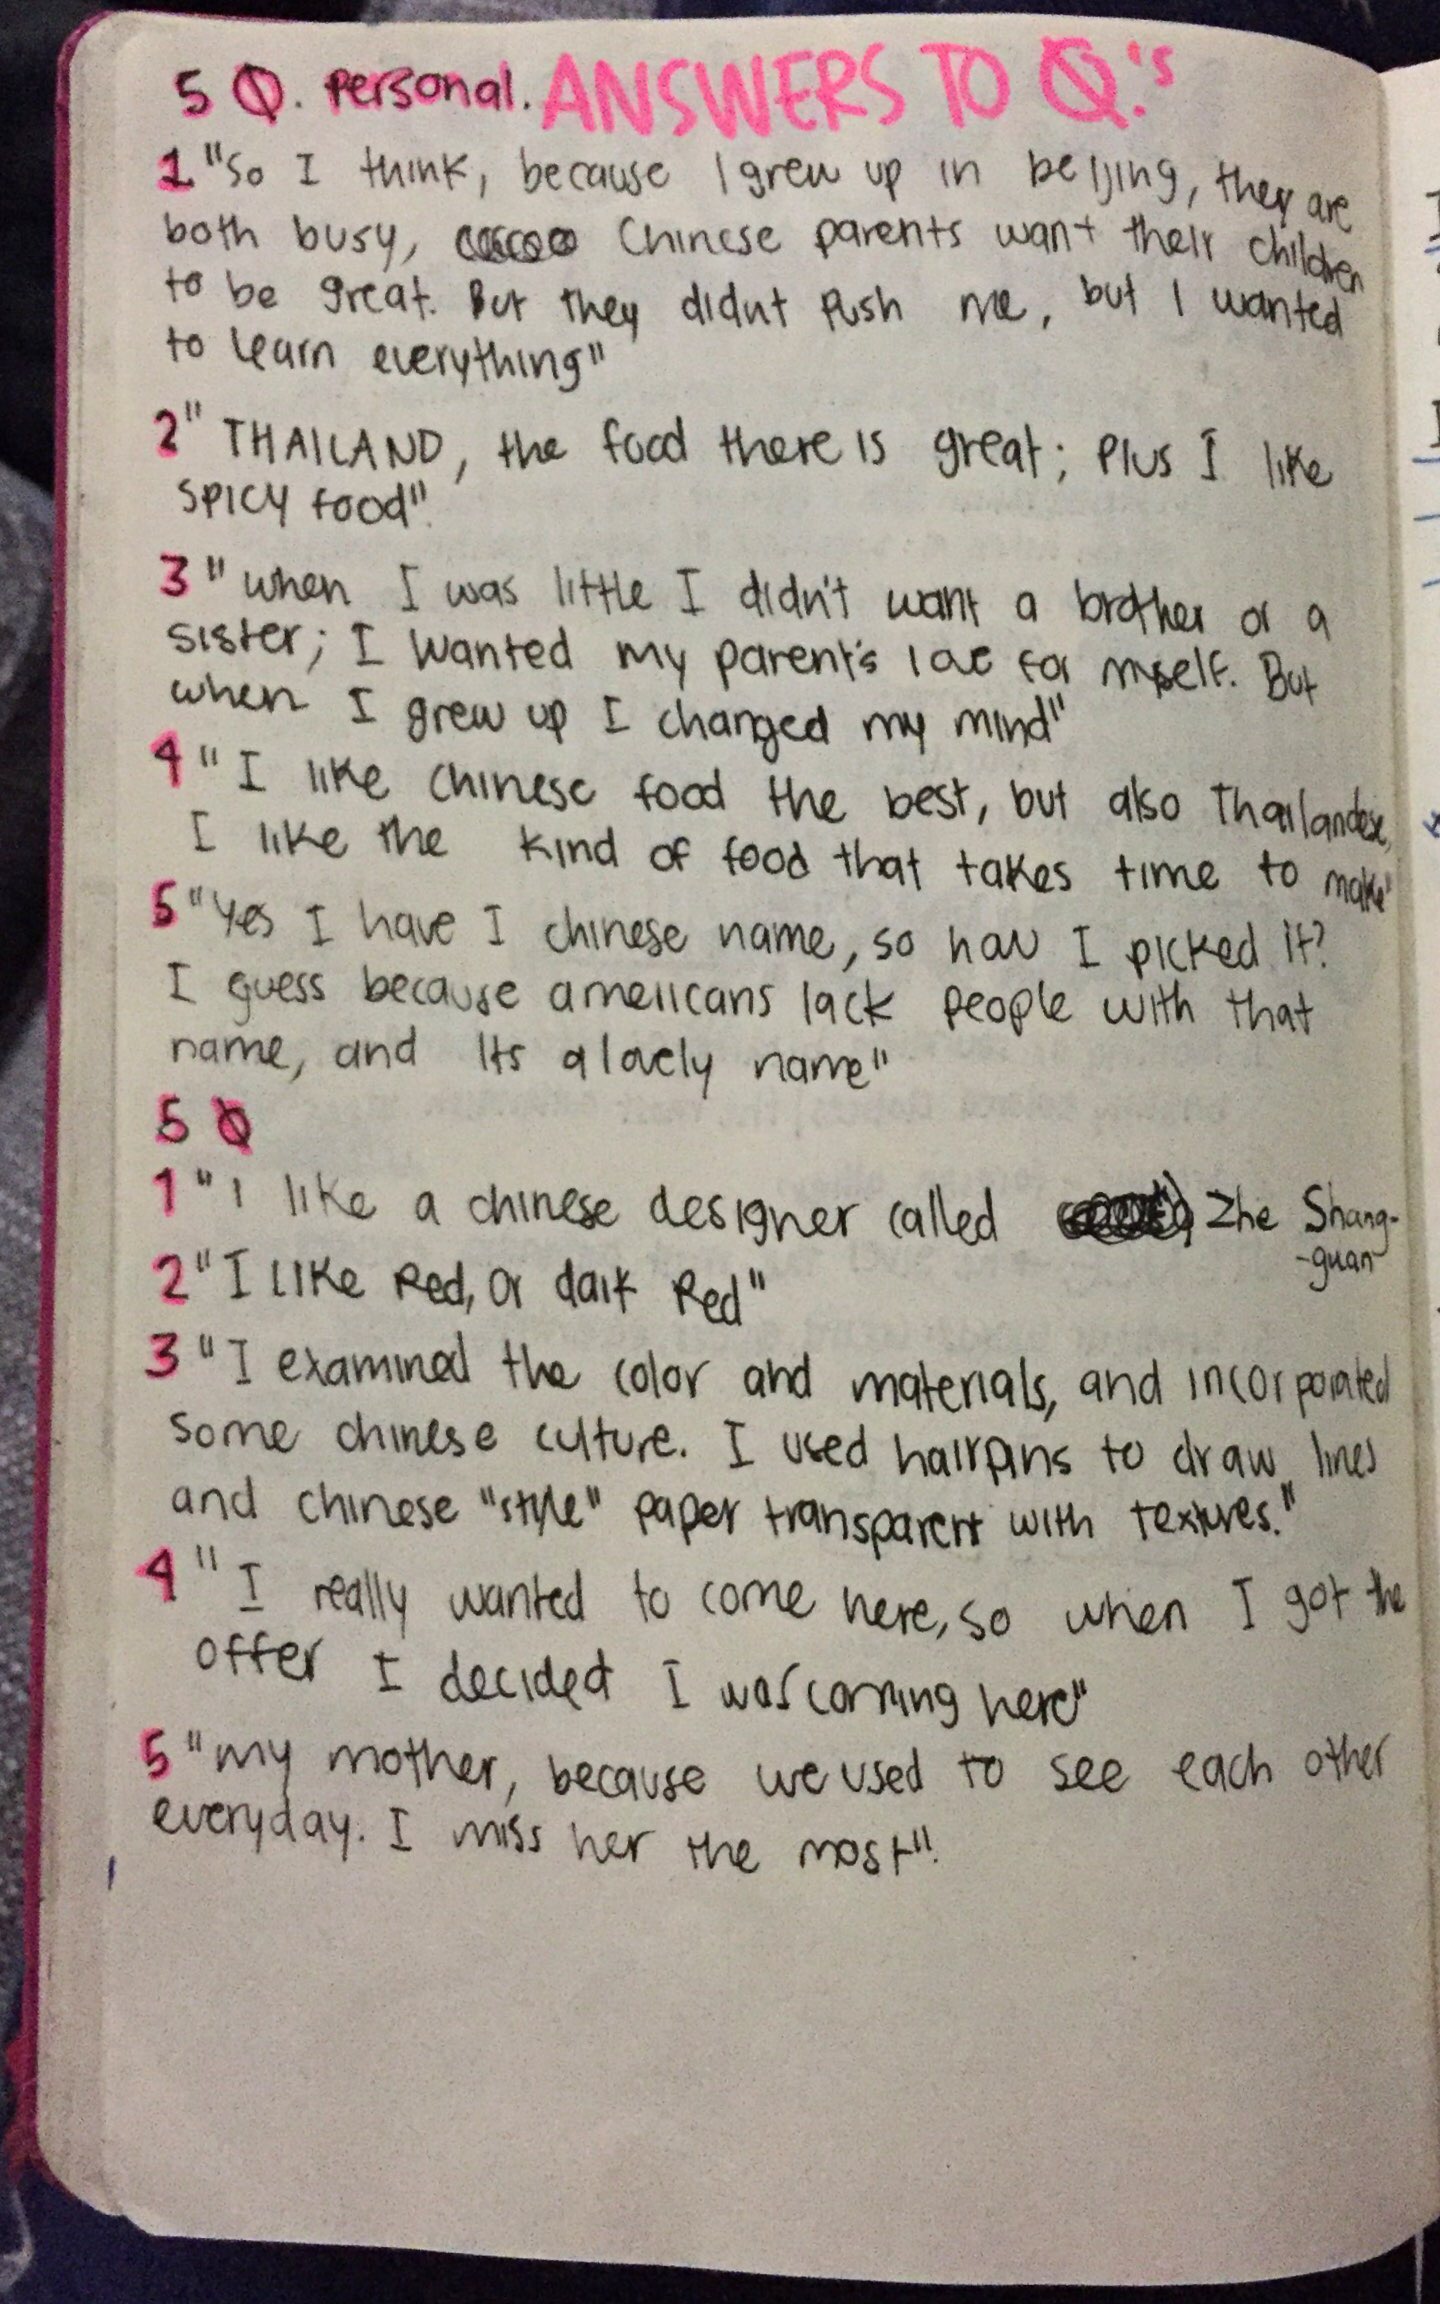 5 Q. Personal. ANSWERS TO Q.'s
1 "So I think, because I grew up in beijing, they are
both busy, Chinese parents want their children
to be great. But they didnt push me, but I wanted
to learn everything"
2" THAILAND, the food there is great; Plus I like
SPICY food".
3 "when I was little I didn't want a brother or a
sister; I wanted my parent's love for myself. But
when I grew up I changed my mind"
4 "I like chinese food the best, but also Thailandese,
I like the kind of food that takes time to make"
5 "Yes I have I chinese name, so how I picked it?
I guess because americans lack people with that
name, and its a lovely name"
5 Q
1 "I like a chinese designer called Zhe Shang-
-guan
2 "I LIKE Red, or dark Red"
3 "I examined the color and materials, and incorporated
some chinese culture. I used hairpins to draw lines
and chinese "style" paper transparent with textures."
4 "I really wanted to come here, so when I got the
offer I decided I was coming here"
5 "my mother, because we used to see each other
everyday. I miss her the most".